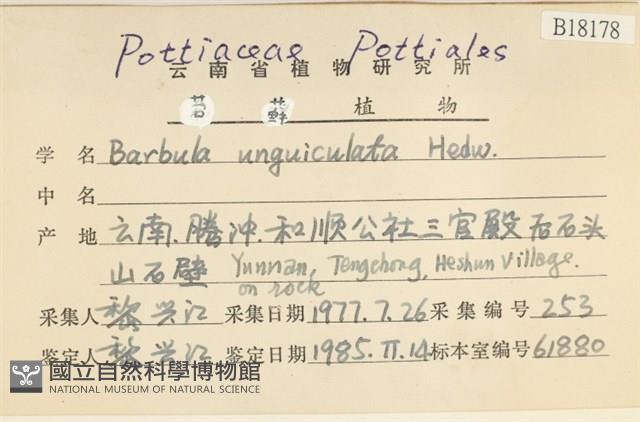 B18178
Pottiaceae Pottiales
云南省植物研究所
苔藓植物
学名 Barbula unguiculata Hedw.
中名
产地 云南.腾冲.和顺公社三官殿后石头
山石壁 Yunnan, Tengchong, Heshun Village.
on rock
采集人 黎兴江 采集日期 1977.7.26 采集编号 253
鉴定人 黎兴江 鉴定日期 1985.II.14 标本室编号 61880
國立自然科學博物館
NATIONAL MUSEUM OF NATURAL SCIENCE